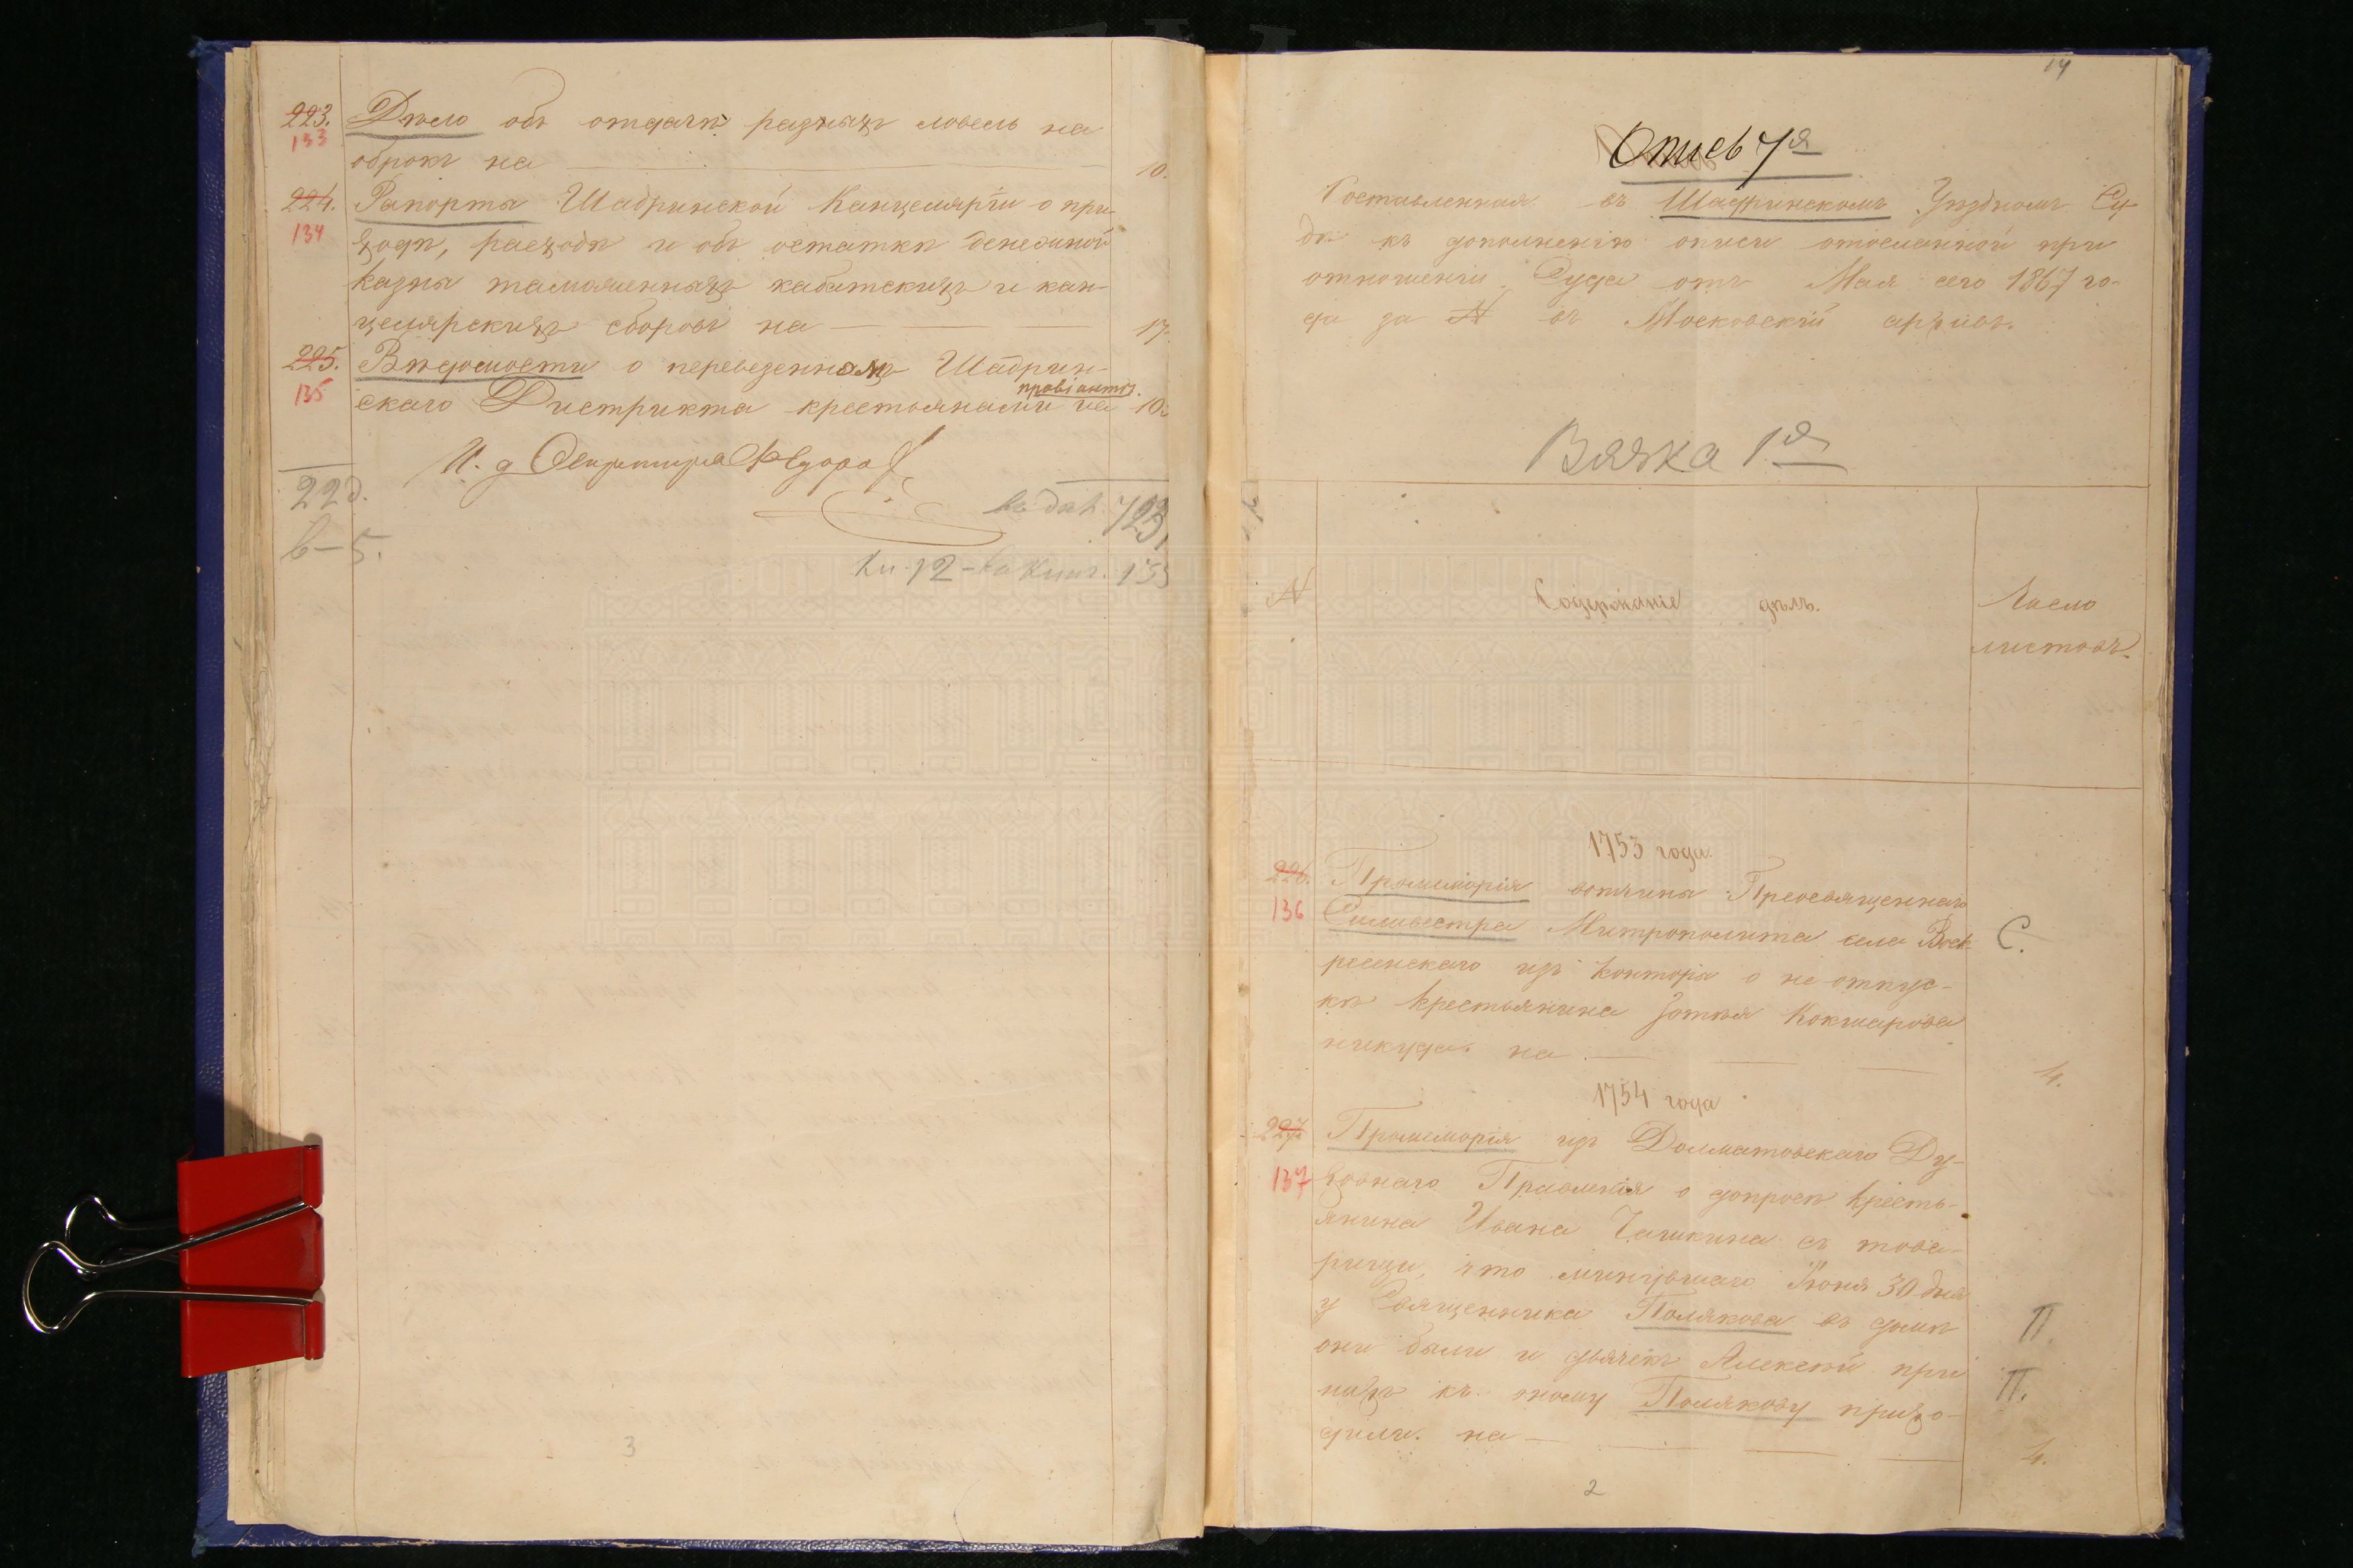 223. Дѣло объ отдачѣ разныхъ ловель на
133
оброкъ на 10.
224. Рапорта Шадринской Канцеляріи о при-
134 ходѣ, расходѣ и объ остаткѣ денежной
казны таможенныхъ кабатскихъ и кан-
целярскихъ сборовъ на 17.
225. Вѣдомости о переведенномъ Шадрин-
провіантѣ.
135 скаго Дистрикта крестьянами на 10.
И. д. Секретаря Федоров
22 д.
723
в-5.
12 -
14
Опись 7я
Составленная въ Шадринскомъ Уѣздномъ Су-
дѣ къ дополненію описи отосланной при
отношеніи Суда отъ Мая сего 1867 го-
да за № въ Московскій архивъ.
Вязка 1я
№ Содержаніе дѣлъ. Число
листовъ.
1753 года
226. Промеморія вотчины Преосвященнаго
136 Сильвестра Митрополита села Воск- С.
ресенскаго изъ Конторы о не отпус-
кѣ крестьянина Зотѣя Кокшарова
никуда на 4.
1754 года
227. Промеморія изъ Долматовскаго Ду-
137 ховнаго Правленія о допросѣ кресть-
янина Ивана Чашкина съ това-
рищи, что минувшаго Іюня 30 дня
у Священника Полякова въ домѣ П.
они были и дьячекъ Алексѣй при
нихъ къ оному Полякову прихо- П.
дили на 4.
3
2